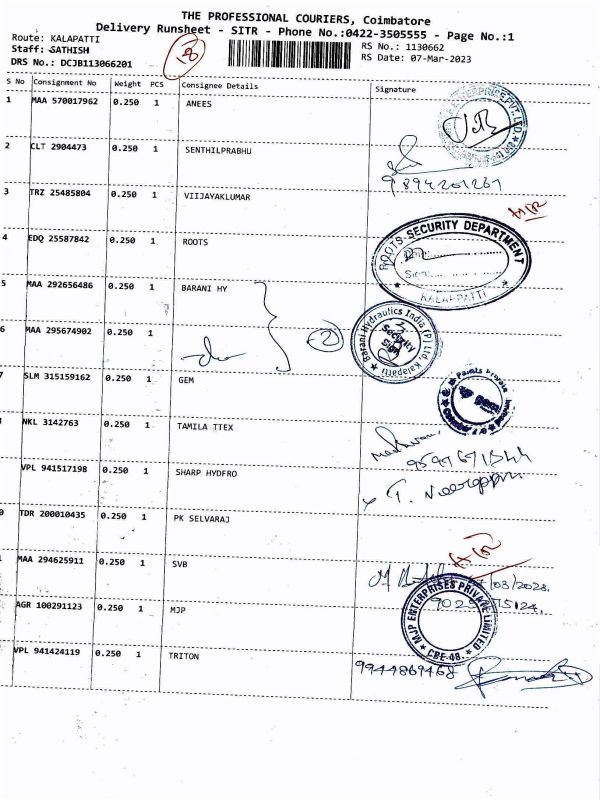 THE PROFESSIONAL COURIERS, Coimbatore
Delivery Runsheet - SITR - Phone No.:0422-3505555 - Page No.:1
Route: KALAPATTI
Staff: SATHISH
DRS No.: DCJB113066201
18
RS No.: 1130662
RS Date: 07-Mar-2023
S No Consignment No Weight PCS Consignee Details Signature
1 MAA 570017962 0.250 1 ANEES
2 CLT 2904473 0.250 1 SENTHILPRABHU
9894201261
3 TRZ 25485804 0.250 1 VIIJAYAKLUMAR
4 EDQ 25587842 0.250 1 ROOTS
ROOTS-SECURITY DEPARTMENT
KALAPPATTI
5 MAA 292656486 0.250 1 BARANI HY
6 MAA 295674902 0.250 1
2
Barani Hydraulics India (P) Ltd, Kalapatti
Security
Sign
7 SLM 315159162 0.250 1 GEM
Paints Private
NKL 3142763 0.250 1 TAMILA TTEX
VPL 941517198 0.250 1 SHARP HYDFRO
0 TDR 200010435 0.250 1 PK SELVARAJ
MAA 294625911 0.250 1 SVB
/03/2023.
AGR 100291123 0.250 1 MJP
MJP ENTERPRISES PRIVATE LIMITED
CBE-48.
VPL 941424119 0.250 1 TRITON
9944869468